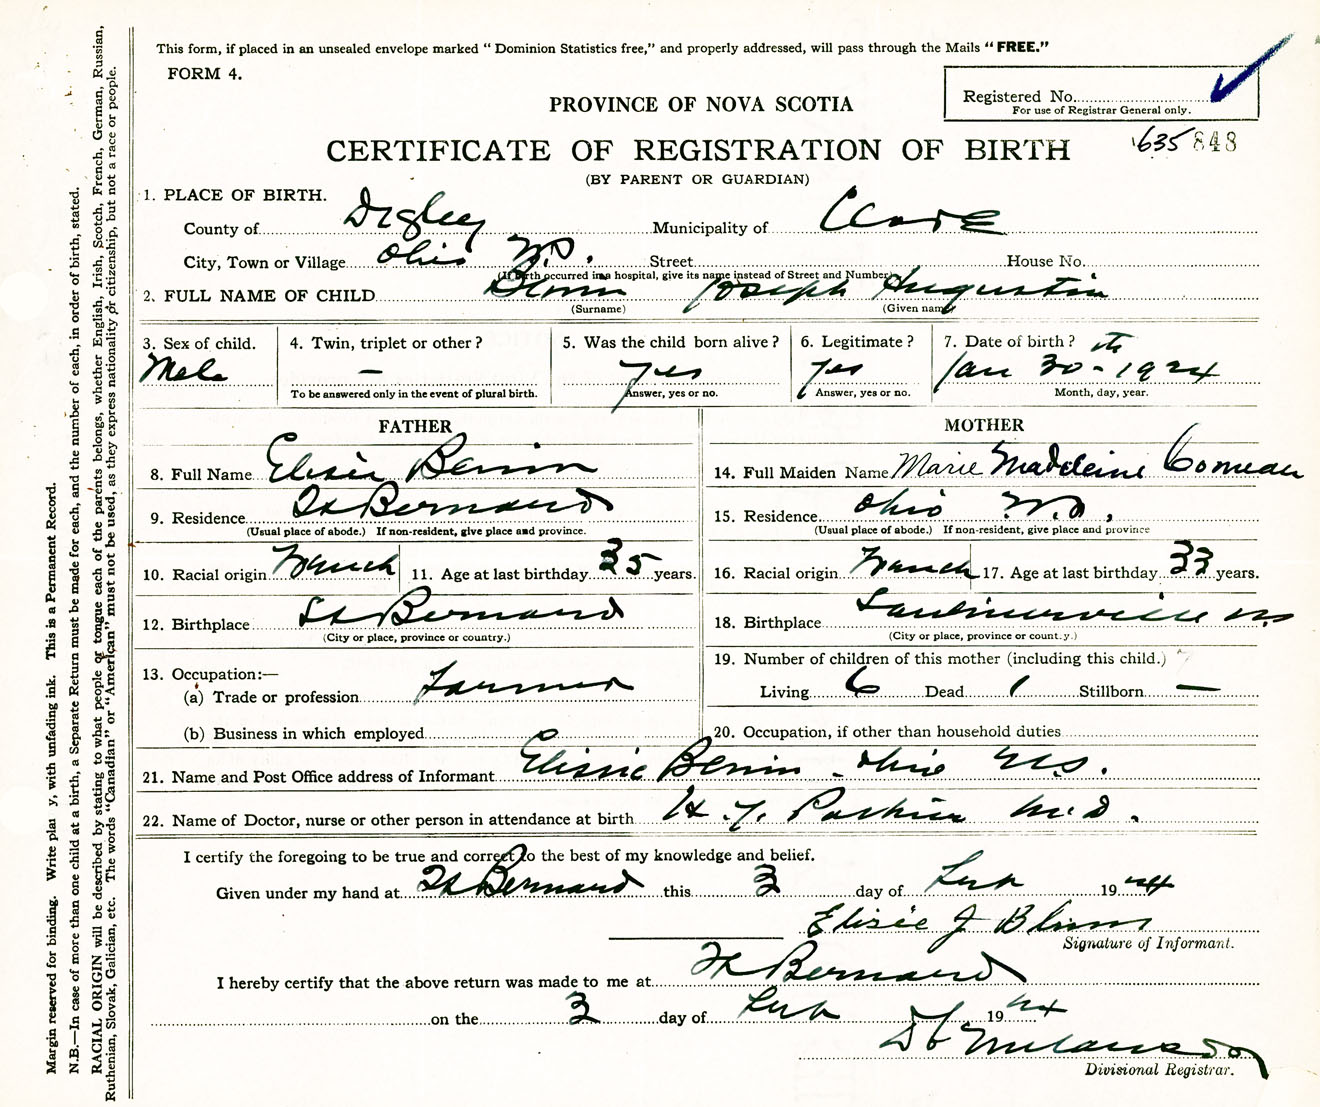 This form, if placed in an unsealed envelope marked " Dominion Statistics free," and properly addressed, will pass through the Mails "FREE."
FORM 4.
Registered No.
For use of Registrar General only.
PROVINCE OF NOVA SCOTIA
CERTIFICATE OF REGISTRATION OF BIRTH
635 848
(BY PARENT OR GUARDIAN)
1. PLACE OF BIRTH.
County of Digby Municipality of Clare
City, Town or Village Ohio N.S. Street House No.
(If birth occurred in a hospital, give its name instead of Street and Number)
2. FULL NAME OF CHILD Joseph Augustin
(Surname) (Given name)
3. Sex of child. 4. Twin, triplet or other? 5. Was the child born alive? 6. Legitimate? 7. Date of birth?
Male — yes yes Jan 30th - 1924
To be answered only in the event of plural birth. Answer, yes or no. Answer, yes or no. Month, day, year.
FATHER MOTHER
8. Full Name Elisée 14. Full Maiden Name Marie Madeleine Comeau
9. Residence St Bernard 15. Residence Ohio N.S.
(Usual place of abode.) If non-resident, give place and province. (Usual place of abode.) If non-resident, give place and province
10. Racial origin French 11. Age at last birthday 35 years. 16. Racial origin French 17. Age at last birthday 33 years.
12. Birthplace St Bernard 18. Birthplace Saulnierville N.S
(City or place, province or country.) (City or place, province or country.)
13. Occupation:— 19. Number of children of this mother (including this child.) 7
(a) Trade or profession Farmer Living 6 Dead 1 Stillborn —
(b) Business in which employed 20. Occupation, if other than household duties
21. Name and Post Office address of Informant - Ohio N.S.
22. Name of Doctor, nurse or other person in attendance at birth M.D.
I certify the foregoing to be true and correct to the best of my knowledge and belief.
Given under my hand at St Bernard this 3 day of 1924
Elisée J Blinn
Signature of Informant.
I hereby certify that the above return was made to me at St Bernard
on the 3 day of 1924
Divisional Registrar.
Margin reserved for binding. Write plai y, with unfading ink. This is a Permanent Record.
N.B.—In case of more than one child at a birth, a Separate Return must be made for each, and the number of each, in order of birth, stated.
RACIAL ORIGIN will be described by stating to what people or tongue each of the parents belongs, whether English, Irish, Scotch, French, German, Russian,
Ruthenian, Slovak, Galician, etc. The words "Canadian" or "American" must not be used, as they express nationality or citizenship, but not a race or people.